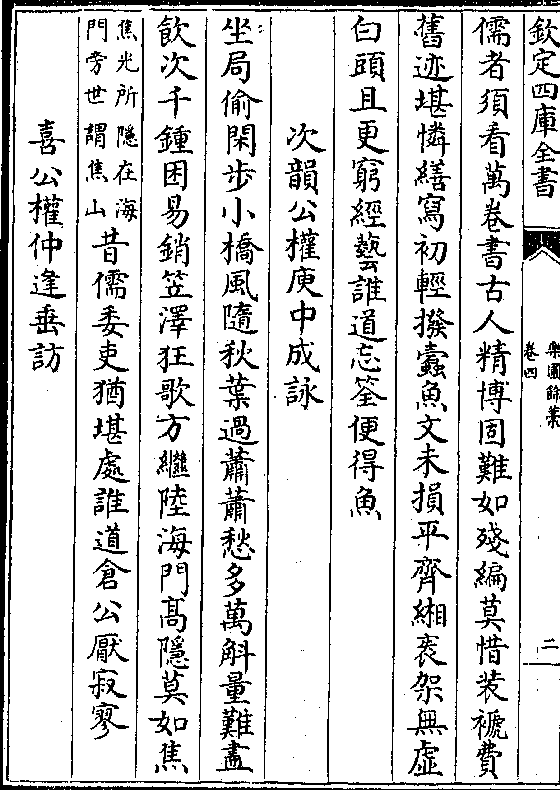 欽定四庫全書
樂圃餘藁
卷四
二
儒者須看萬卷書古人精博固難如殘編莫惜裝褫費
舊迹堪憐繕寫初輕撥蠧魚文未損平齊緗袠架無虛
白頭且更窮經藝誰道忘筌便得魚
次韻公權庾中成詠
坐局偷閑步小橋風隨秋葉過蕭蕭愁多萬斛量難盡
飲次千鍾困易銷笠澤狂歌方繼陸海門髙隱莫如焦
焦光所隱在海
門旁世謂焦山
昔儒委吏猶堪處誰道倉公厭寂寥
喜公權仲逢垂訪